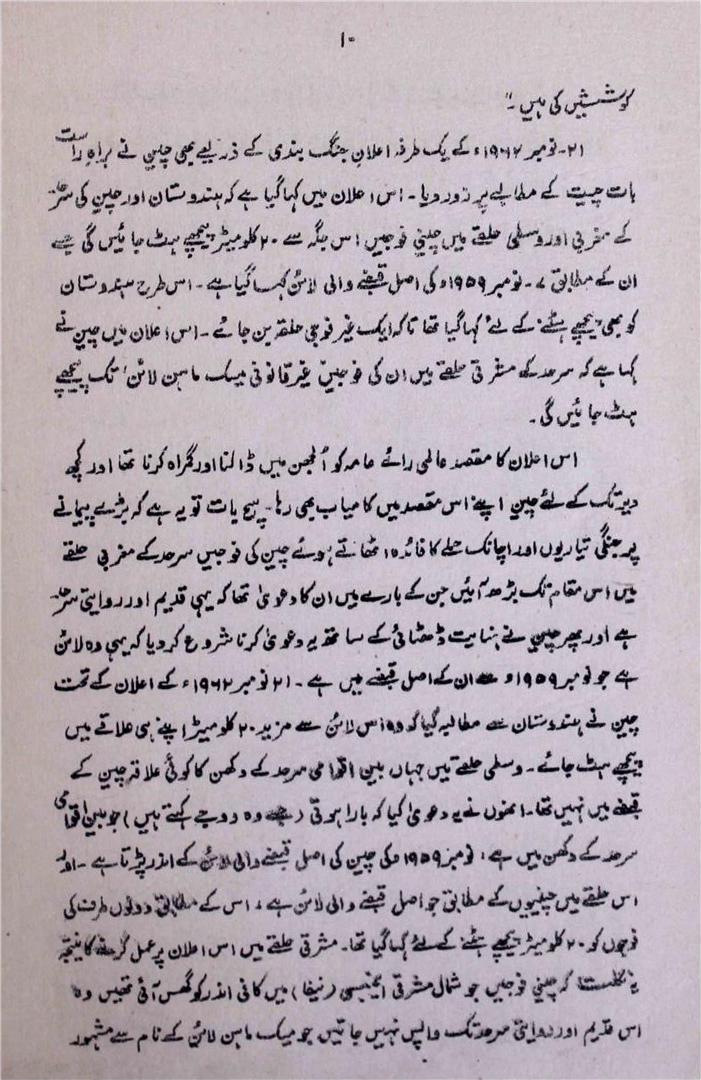 ۱۰
کوششیں کی ہیں۔"
۲۱۔نومبر ۱۹۶۲ء کے یک طرفہ اعلانِ جنگ بندی کے ذریعے بھی چین نے براہِ راست
بات چیت کے مطالبے پر زور دیا۔ اس اعلان میں کہا گیا ہے کہ ہندوستان اور چین کی سرحد
کے مغربی اور وسطی حلقے میں چینی فوجیں اس جگہ سے ۲۰ کلومیٹر پیچھے ہٹ جائیں گی جسے
ان کے مطابق ۷۔نومبر ۱۹۵۹ء کی اصل قبضے والی لائن کہا گیا ہے۔ اس طرح ہندوستان
کو بھی پیچھے ہٹنے کے لئے کہا گیا تھا تاکہ ایک غیر فوجی حلقہ بن جائے۔ اس اعلان میں چین نے
کہا ہے کہ سرحد کے مشرقی حلقے میں ان کی فوجیں غیر قانونی میک ماہن لائن تک پیچھے
ہٹ جائیں گی۔
اس اعلان کا مقصد عالمی رائے عامہ کو اُلجھن میں ڈالنا اور گمراہ کرنا تھا اور کچھ
دیر تک کے لئے چین اپنے اس مقصد میں کامیاب بھی رہا۔ سچ بات تو یہ ہے کہ بڑے پیمانے
پر جنگی تیاریوں اور اچانک حملے کا فائدہ اٹھاتے ہوئے چین کی فوجیں سرحد کے مغربی حلقے
میں اس مقام تک بڑھ آئیں جن کے بارے میں ان کا دعویٰ تھا کہ یہی قدیم اور روایتی سرحد
ہے اور پھر چین نے نہایت ڈھٹائی کے ساتھ یہ دعویٰ کرنا شروع کر دیا کہ یہی وہ لائن
ہے جو نومبر ۱۹۵۹ء سے ان کے اصل قبضے میں ہے۔ ۲۱ نومبر ۱۹۶۲ء کے اعلان کے تحت
چین نے ہندوستان سے مطالبہ کیا کہ وہ اس لائن سے مزید ۲۰ کلومیڑ اپنے ہی علاقے میں
پیچھے ہٹ جائے۔ وسطی حلقے میں جہاں بین اقوامی سرحد کے دکھن کا کوئی علاقہ چین کے
قبضے میں نہیں تھا۔ انھوں نے یہ دعویٰ کیا کہ بارا ہوتی (جسے وہ ووجے کہتے ہیں) جو بین اقوامی
سرحد کے دکھن میں ہے، نومبر ۱۹۵۹ء کی چین کی اصل قبضے والی لائن کے اندر پڑتا ہے۔ اور
اس حلقے میں چینیوں کے مطابق جو اصل قبضے والی لائن ہے، اس کے مطابق دونوں طرف کی
فوجوں کو ۲۰ کلومیٹر پیچھے ہٹنے کے لئے کہا گیا تھا۔ مشرقی حلقے میں اس اعلان پر عمل کرنے کا نتیجہ
یہ نکلتا کہ چینی فوجیں جو شمال مشرقی ایجنسی (نیفا) میں کافی اندر کو گھس آئی تھیں وہ
اس قدیم اور روایتی سرحد تک واپس نہیں جاتیں جو میک ماہن لائن کے نام سے مشہور